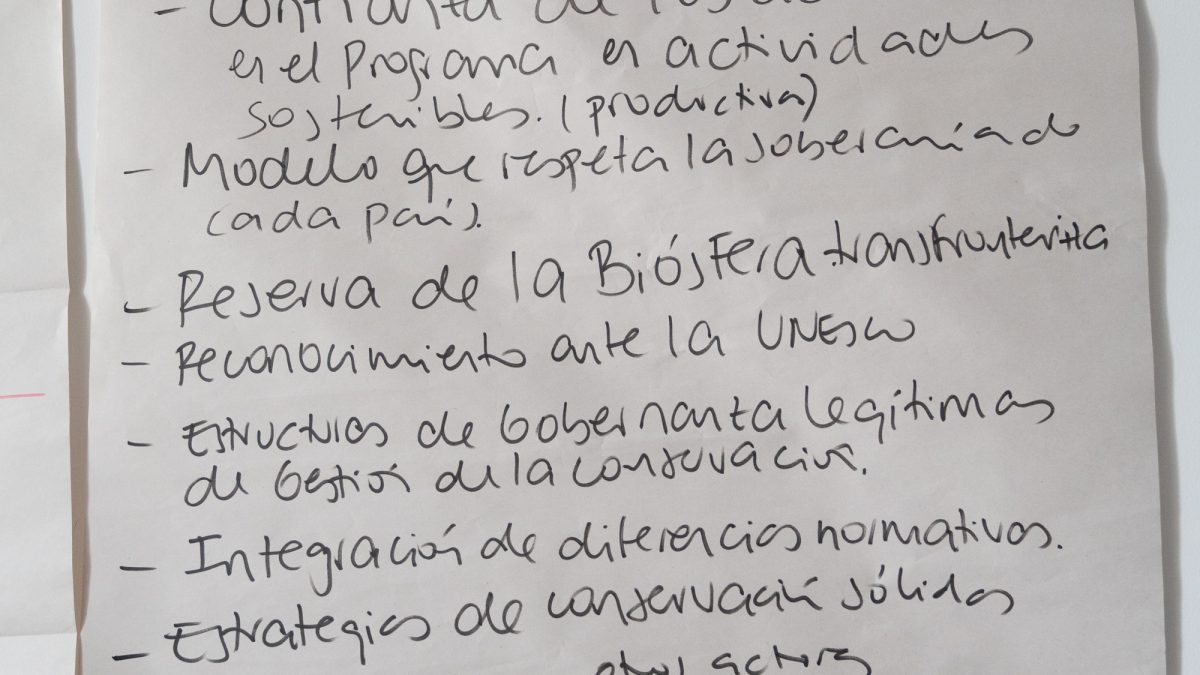 - Confianza de
en el Programa en actividades
sostenibles. (productiva)
- Modelo que respeta la soberanía de
cada país.
- Reserva de la Biósfera transfronteriza
- Reconocimiento ante la UNESCO
- Estructuras de Gobernanza legítimas
de Gestión de la conservación.
- Integración de diferencias normativas.
- Estrategias de conservación sólidas
otros actores